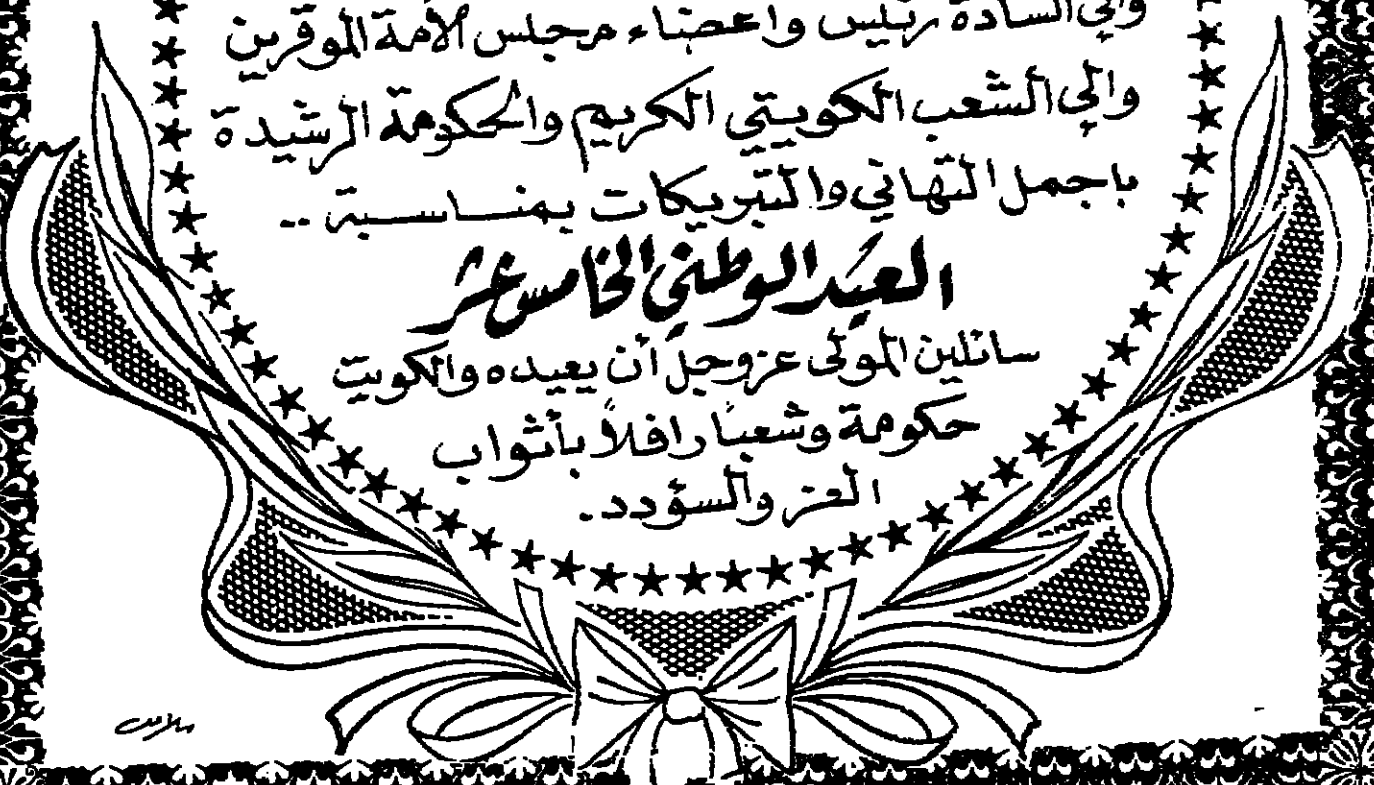 والى السادة رئيس واعضاء مجلس الأمة الموقرين
والى الشعب الكويتي الكريم والحكومة الرشيدة
باجمل التهاني والتبريكات بمناسبة ..
العيد الوطني الخامس عشر
سائلين المولى عز وجل أن يعيده والكويت
حكومة وشعبًا رافلاً بأثواب
العز والسؤدد .